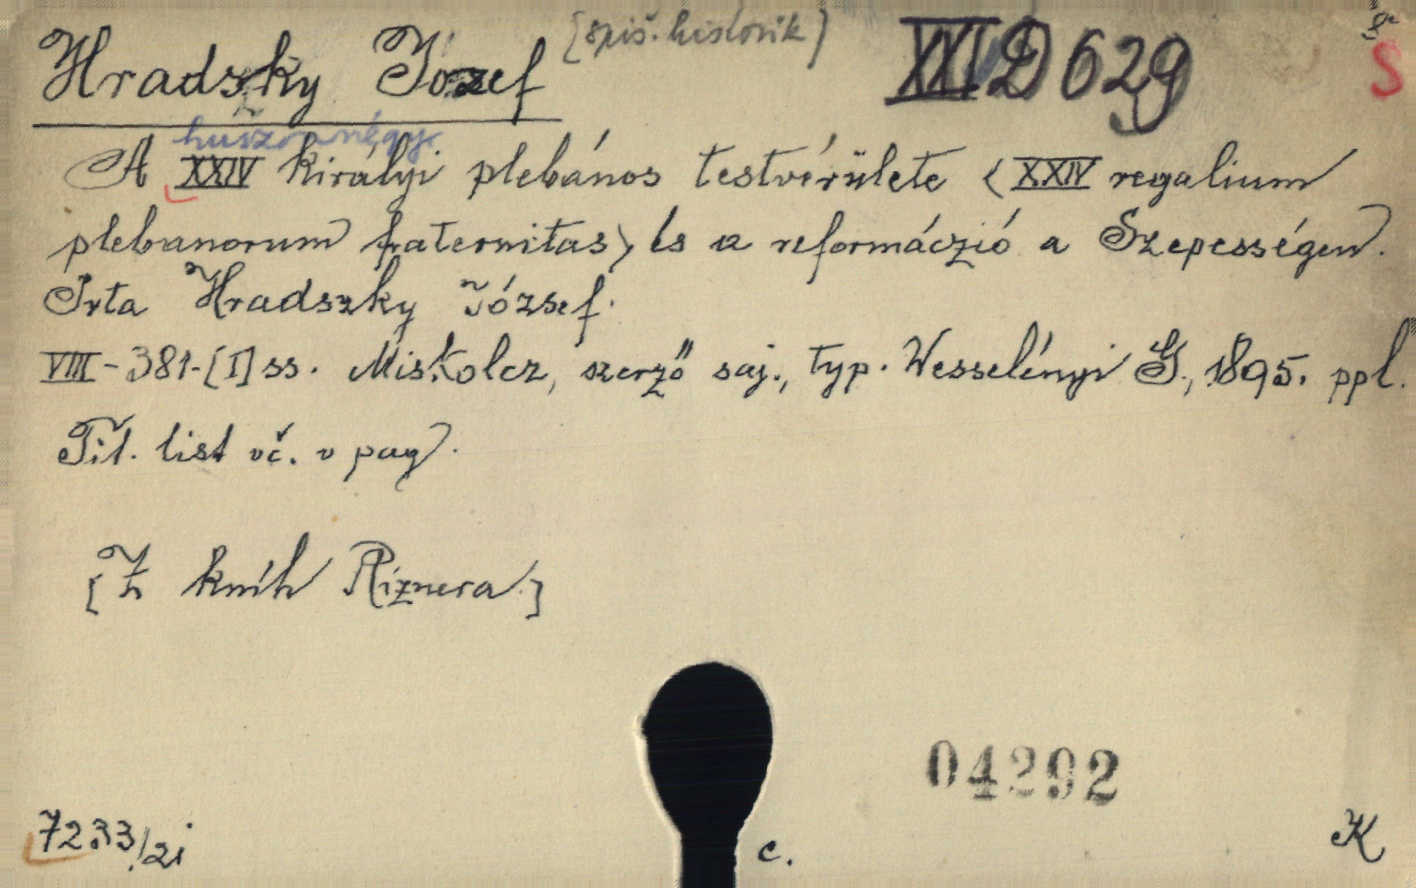 Hradszky Jozef [spiš. historik] XXI D 629
S
huszonnégy
A XXIV királyi plebános testvérülete (XXIV regalium
plebanorum fraternitas) és a reformáczió a Szepességen.
Irta Hradszky József.
VIII-381-[I] ss. Miskolcz, szerző saj., typ. Wesselényi G., 1895. ppl.
Tit. list vč. v pag.
[Z kníh Riznera.]
04292
7233/21 c. K